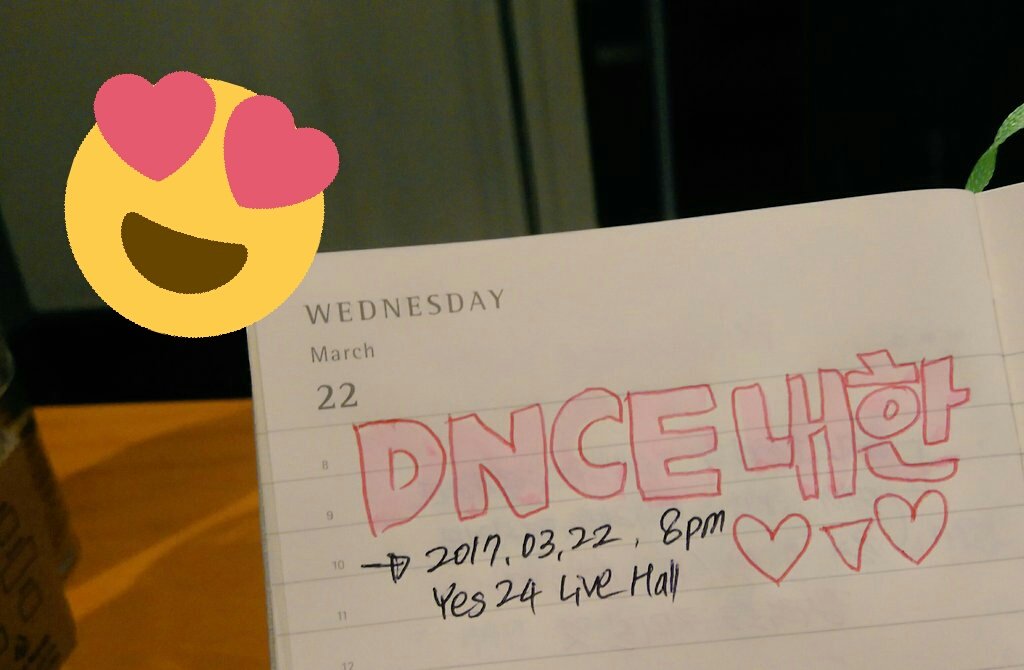 WEDNESDAY
March
22
8
DNCE 내한
9
10
→ 2017.03.22. 8pm
Yes24 Live Hall
11
12